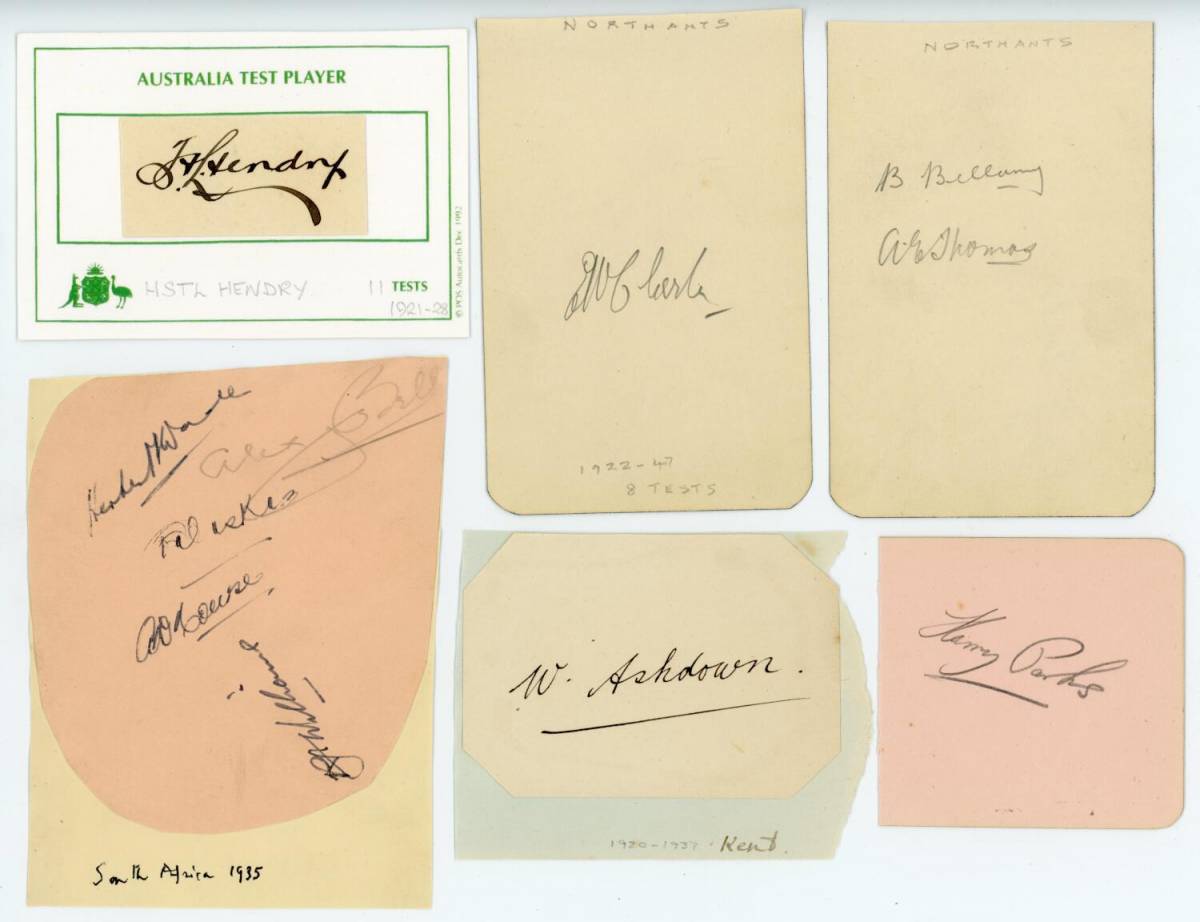 AUSTRALIA TEST PLAYER
H.L. Hendry
HSTL HENDRY 11 TESTS
1921-28
© POS Autocards Dec 1992
NORTHANTS
EW Clark
1922-47
8 TESTS
NORTHANTS
B Bellamy
A.E. Thomas
Herbert Wade
Alex Bell
South Africa 1935
W. Ashdown.
1920-1937. Kent.
Harry Parks